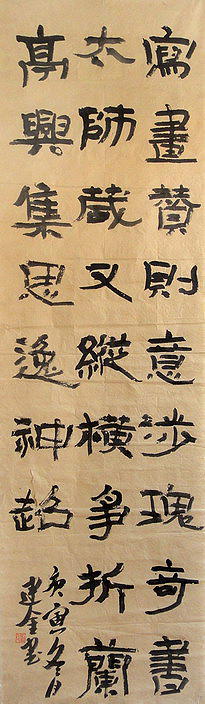 寫畫贊則意涉瑰奇書
太師箴又縱橫爭折蘭
亭興集思逸神超
庚寅冬月
建金書